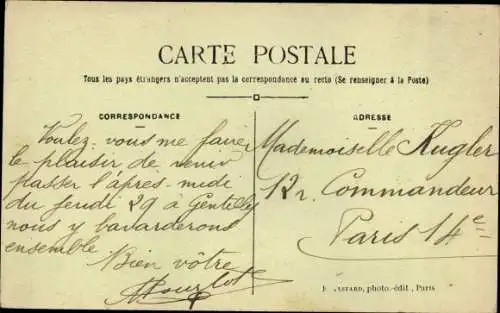 CARTE POSTALE
Tous les pays étrangers n'acceptent pas la correspondance au recto (Se renseigner à la Poste)
CORRESPONDANCE
Voulez-vous me faire
le plaisir de venir
passer l'après-midi
du jeudi 29 à Gentilly
nous y bavarderons
ensemble
Bien vôtre
ADRESSE
Mademoiselle Kugler
12 r. Commandeur
Paris 14e
photo-édit, Paris